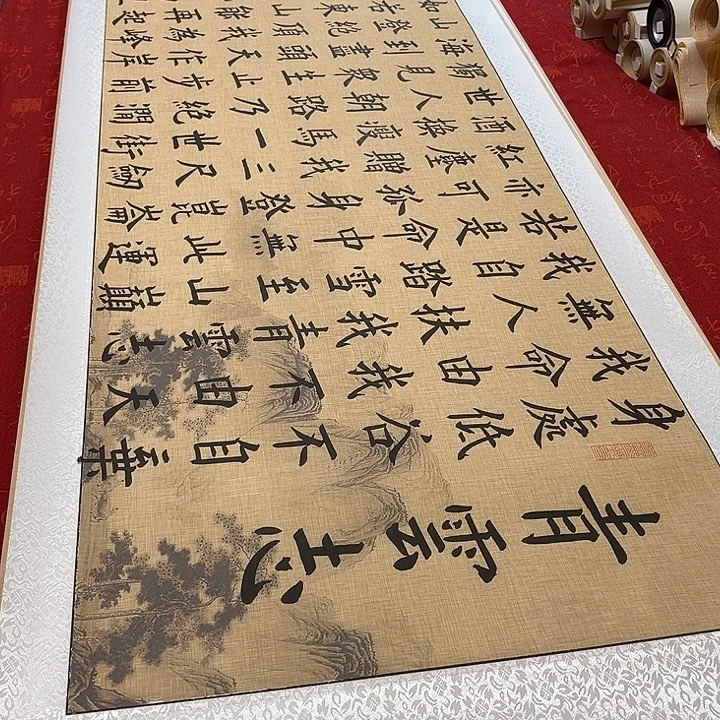 青雲志
身處低谷不自棄
我命由我不由天
無人扶我青雲志
我自踏雪至山巔
若是命中無此運
亦可孤身登崑崙
紅塵贈我三尺劍
酒換瘦馬一世街
世人朝路乃絕澗
獨見衆生止步前
海到盡頭天作岸
山登絕頂我為峰
如若東山能再起